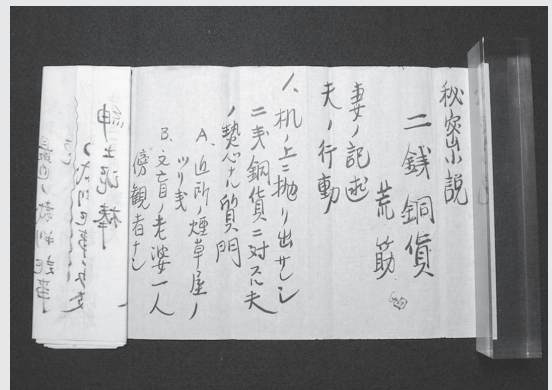 秘密小説
二銭銅貨
荒筋
妻ノ記述
夫ノ行動
1、机ノ上ニ抛リ出サレシ
二銭銅貨ニ対スル夫
ノ熱心ナル質問
A、近所ノ煙草屋ノ
ツリ銭
B、文盲ノ老婆一人
傍観者ナシ
紳士泥棒